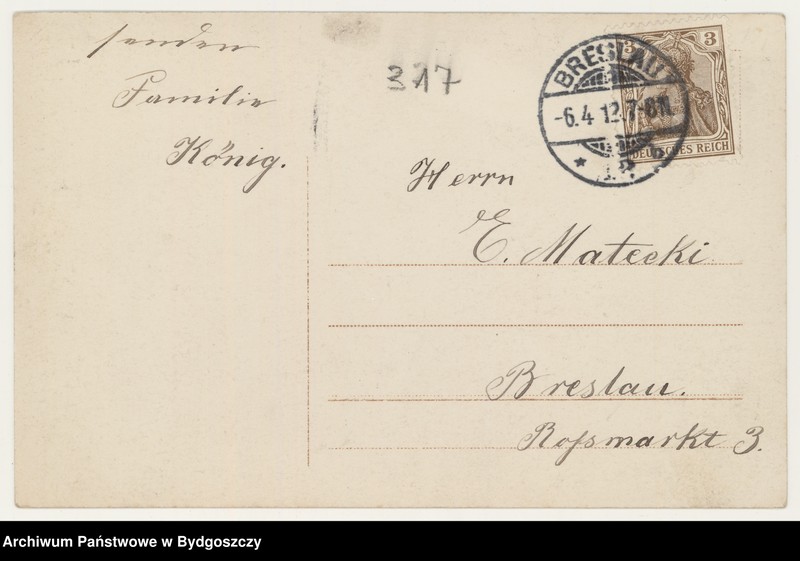 senden
Familie
König.
317
BRESLAU
-6.4 12.7-8N.
3
DEUTSCHES REICH
Herrn
E. Matecki
Breslau.
Roßmarkt 3.
Archiwum Państwowe w Bydgoszczy